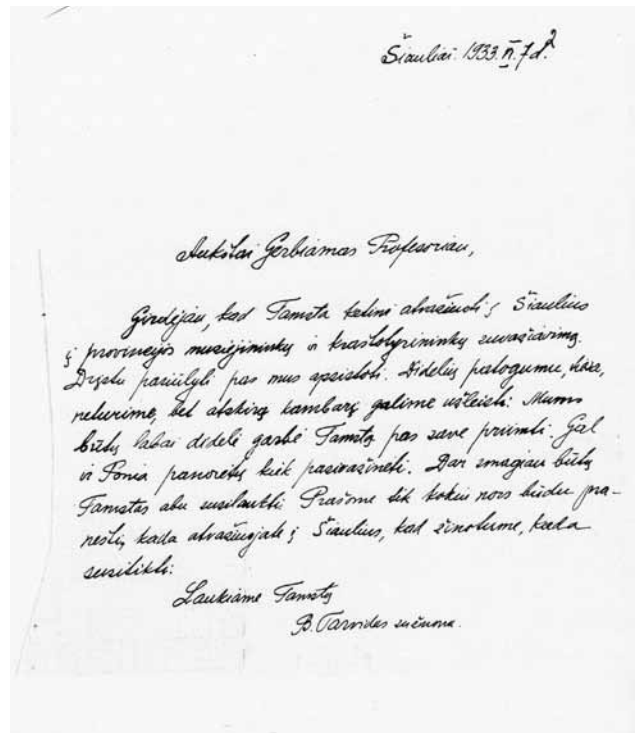 Šiauliai. 1933. VI. 7 d.
Aukštai Gerbiamas Profesoriau,
Girdėjau, kad Tamsta ketini atvažiuoti į Šiaulius
į provincijos muziejininkų ir kraštotyrininkų suvažiavimą.
Drįstu pasiūlyti pas mus apsistoti. Didelių patogumų,
neturime, bet atskirą kambarį galime užleisti. Mums
būtų labai didelė garbė Tamstą pas save priimti. Gal
ir Ponia panorėtų kiek pasivažinėti. Dar smagiau būtų
Tamstas abu susilaukti. Prašome tik tokiu nors būdu pra-
nešti, kada atvažiuojate į Šiaulius, kad žinotume, kada
susitikti.
Laukiame Tamstų
B. Tarvidas su žmona.